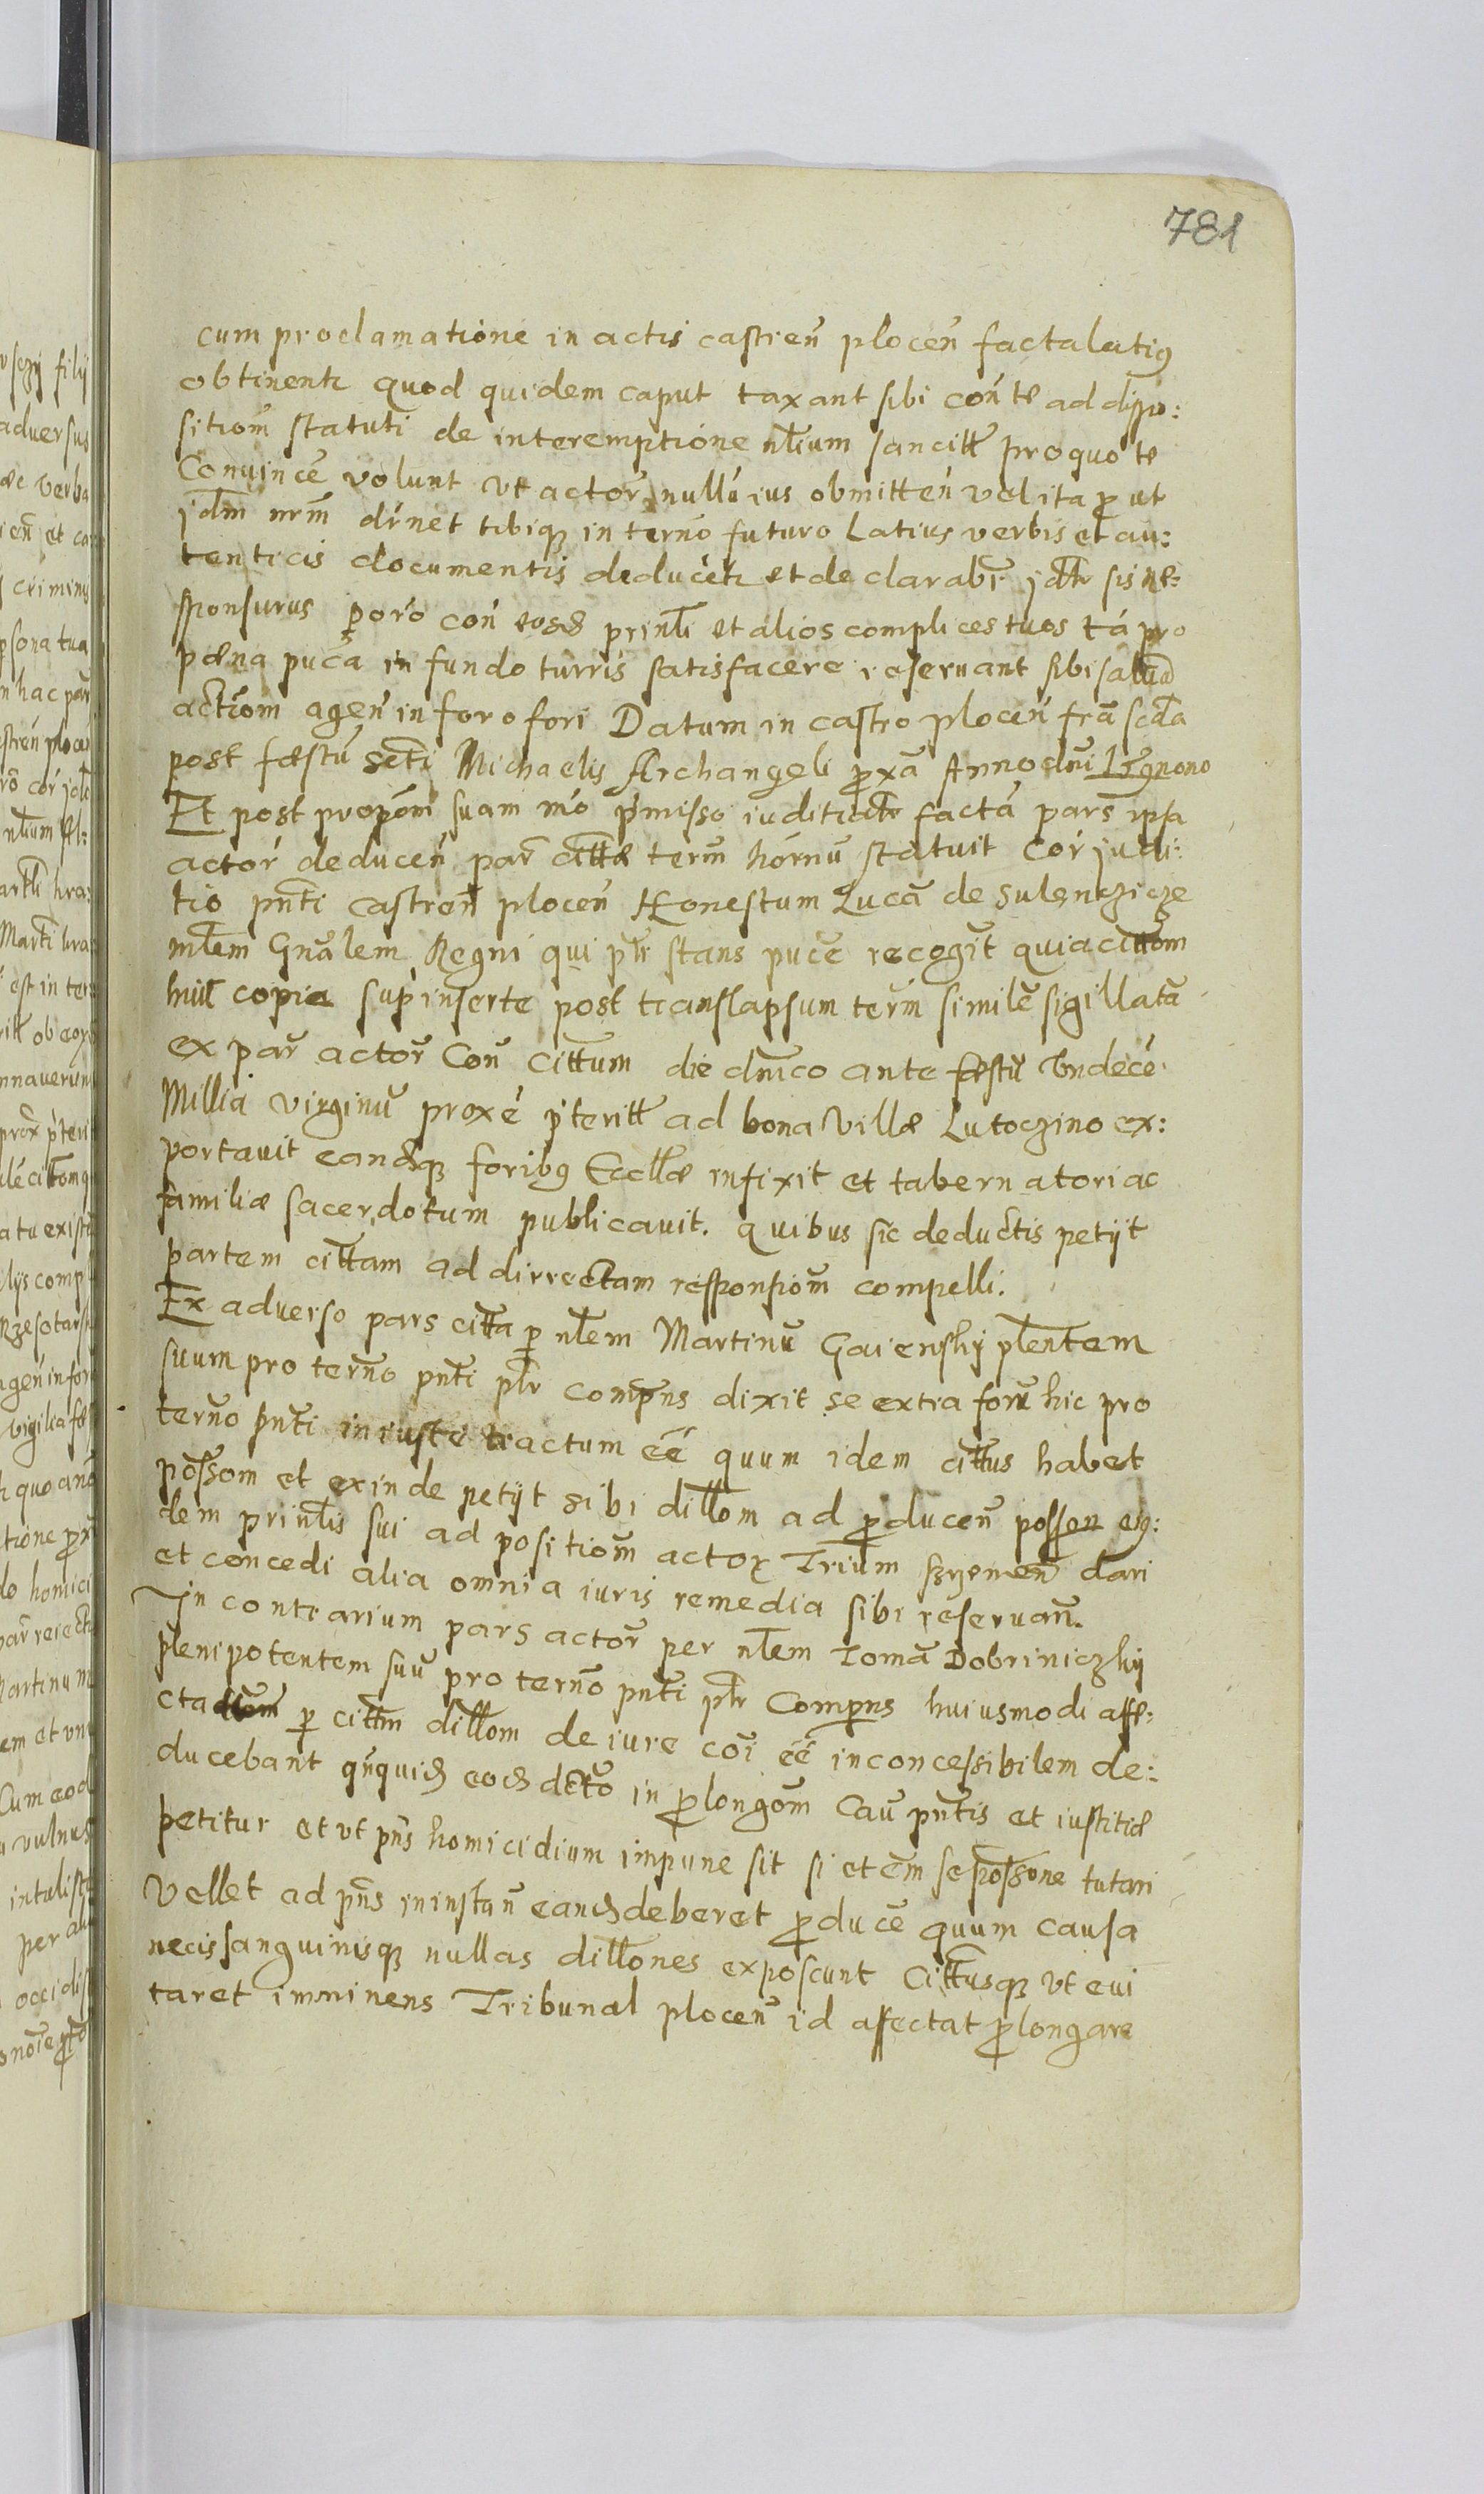 781
cum proclamatione in actis castreñ ploceñ facta latiꝰ
obtinenti quod quidem caput taxant sibi coñ te ad dispo:
sitiom̃ statuti de interemptione nl̃ium sancitt̃ pro quo te
Conuincẽ volunt vt actor̃ nullũ ius obmitteñ vel ita ꝓ ut
jdm̃ nrm̃ dr̃net tibiqꝫ in term̃o futuro Latius verbis et au:
tenticis documentis deducẽt et declarabĩ jdt̃e sis re:
sponsurus ꝑoro coñ eosd̃ prinl̃i et alios complices tuos tã pro
pæna puc̃a in fundo turris satisfacere reseruant sibi saluã
actiom̃ ageñ in foro fori Datum in castro ploceñ fr̃a scd̃a
post fæstũ sct̃i Michaelis Archangeli ꝓxã Anno dñi 159nono
Et post propõm̃ suam mõ p̃misso iuditialt̃e factã pars ipsa
actor̃ deduceñ par̃ citt̃æ term̃ hornũ statuit Cor̃ judi:
tio pñti castreñ ploceñ Honestum Lucã de Sulenczicze
ml̃em Gnãlem Regni qui pr̃ stans pucẽ recogñt quia citt̃om
huiũ copiæ sup̃inserte post translapsum term̃ similẽ sigillatã
ex par̃ actor̃ Coñ Citt̃um die dñico ante fæstũ Vndecẽ
Millia Virginũ proxẽ p̃teritt̃ ad bona Villæ Lutoczino ex:
portauit eandqꝫ foribꝰ Eccll̃æ infixit et tabernatori ac
familiæ sacerdotum publicauit. quibus sic deductis petijt
partem citt̃am ad dirrectam responsiom̃ compelli.
Ex aduerso pars citt̃a ꝑ nl̃em Martinũ Gaienskij pl̃entem
suum pro term̃o pñti pl̃r compñs dixit se extra forũ hic pro
term̃o pñti iniustẽ tractum eẽ quum idem citt̃us habet
possom̃ et exinde petijt sibi dill̃om ad ꝓduceñ posseñ eiꝰ:
dem prinl̃is sui ad positiom̃ actoꝝ Trium szyemeñ dari
et concedi alia omnia iuris remedia sibi reseruañ.
In contrarium pars actor̃ per nl̃em Tomã Dobriniczkij
plenipotentem suũ pro term̃o pñti pl̃r Compñs huiusmodi affe:
ctatt̃om ꝑ citt̃m dill̃om de iure coĩ eẽ inconcessibilem de:
ducebant qñquid̃ eod̃ dct̃o in ꝓlongom̃ Cau pñtis et iustitiæ
petitur et vt pñs homicidium impune sit si etem̃ se possone tutari
Vellet ad pñs in instañ eand̃ deberet ꝓducẽ quum causa
necis sanguinisqꝫ nullas dill̃ones exposcunt Citt̃usqꝫ vt eui
taret imminens Tribunal ploceñ id affectat ꝓlongare